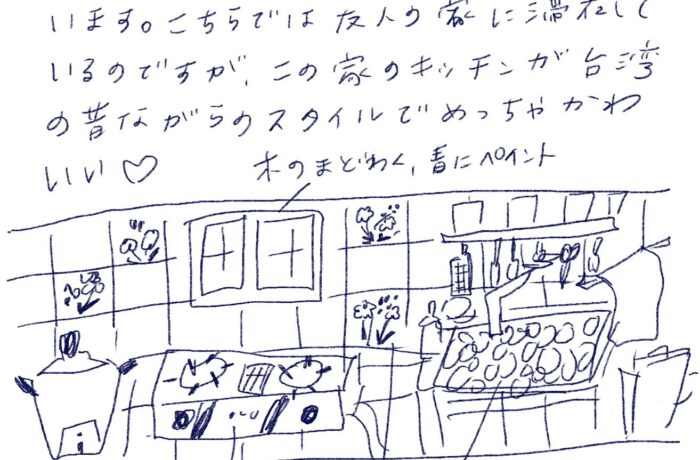 います。こちらでは友人の家に滞在して
いるのですが、この家のキッチンが台湾
の昔ながらのスタイルでめっちゃかわ
いい♡
木のまどわく、青にペイント